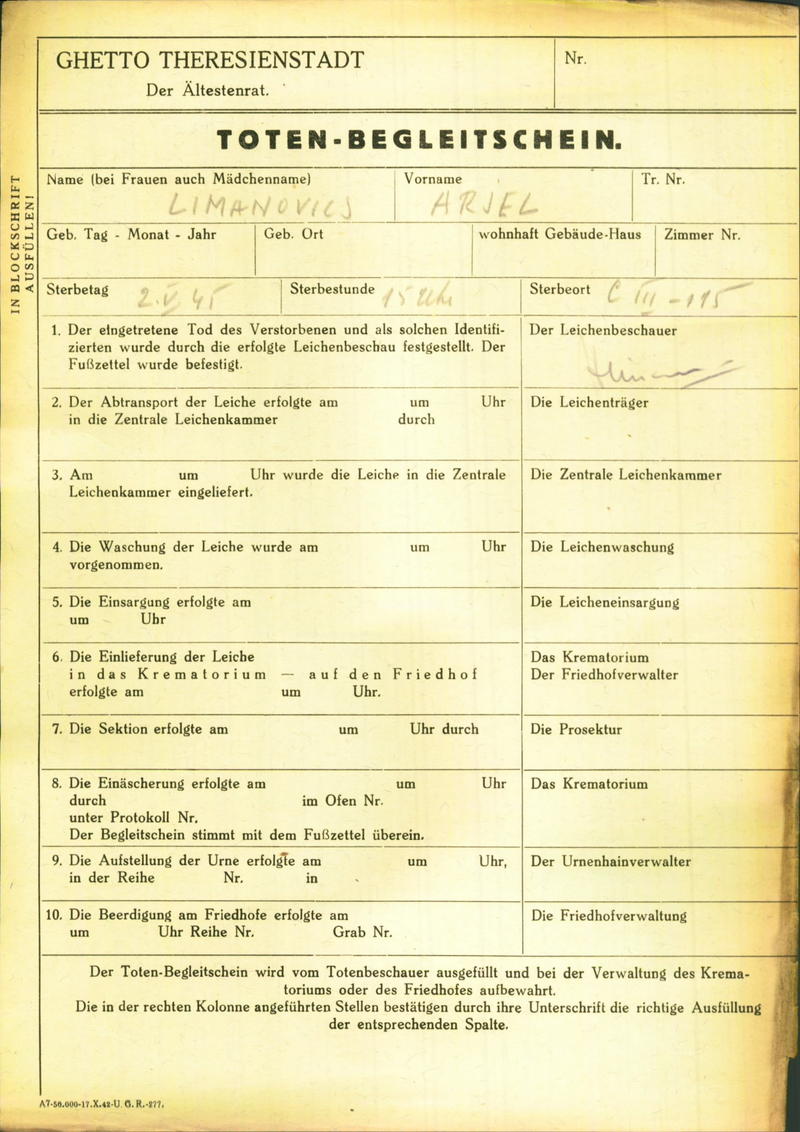 GHETTO THERESIENSTADT
Der Ältestenrat.
Nr.
TOTEN-BEGLEITSCHEIN.
IN BLOCKSCHRIFT
AUSFÜLLEN!
Name (bei Frauen auch Mädchenname)
LIMANOVICS
Vorname
ARJEL
Tr. Nr.
Geb. Tag - Monat - Jahr
Geb. Ort
wohnhaft Gebäude-Haus
Zimmer Nr.
Sterbetag 2.V.45
Sterbestunde 15 Uhr
Sterbeort C III - 115
1. Der eingetretene Tod des Verstorbenen und als solchen Identifi-
zierten wurde durch die erfolgte Leichenbeschau festgestellt. Der
Fußzettel wurde befestigt.
Der Leichenbeschauer
2. Der Abtransport der Leiche erfolgte am um Uhr
in die Zentrale Leichenkammer durch
Die Leichenträger
3. Am um Uhr wurde die Leiche in die Zentrale
Leichenkammer eingeliefert.
Die Zentrale Leichenkammer
4. Die Waschung der Leiche wurde am um Uhr
vorgenommen.
Die Leichenwaschung
5. Die Einsargung erfolgte am
um Uhr
Die Leicheneinsargung
6. Die Einlieferung der Leiche
in das Krematorium — auf den Friedhof
erfolgte am um Uhr.
Das Krematorium
Der Friedhofverwalter
7. Die Sektion erfolgte am um Uhr durch
Die Prosektur
8. Die Einäscherung erfolgte am um Uhr
durch im Ofen Nr.
unter Protokoll Nr.
Der Begleitschein stimmt mit dem Fußzettel überein.
Das Krematorium
9. Die Aufstellung der Urne erfolgte am um Uhr,
in der Reihe Nr. in
Der Urnenhainverwalter
10. Die Beerdigung am Friedhofe erfolgte am
um Uhr Reihe Nr. Grab Nr.
Die Friedhofverwaltung
Der Toten-Begleitschein wird vom Totenbeschauer ausgefüllt und bei der Verwaltung des Krema-
toriums oder des Friedhofes aufbewahrt.
Die in der rechten Kolonne angeführten Stellen bestätigen durch ihre Unterschrift die richtige Ausfüllung
der entsprechenden Spalte.
A7-50.000-17.X.42-U. G. R.-277.